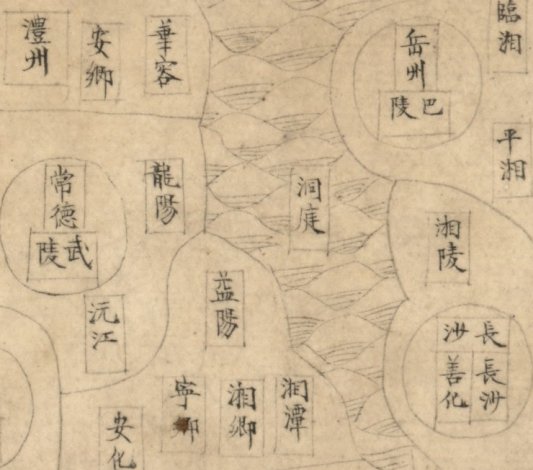 臨湘
平湘
岳州
巴陵
湘陵
長沙
長沙
善化
洞庭
湘潭
湘鄉
寧鄉
益陽
安化
華容
安鄉
澧州
龍陽
常德
武陵
沅江